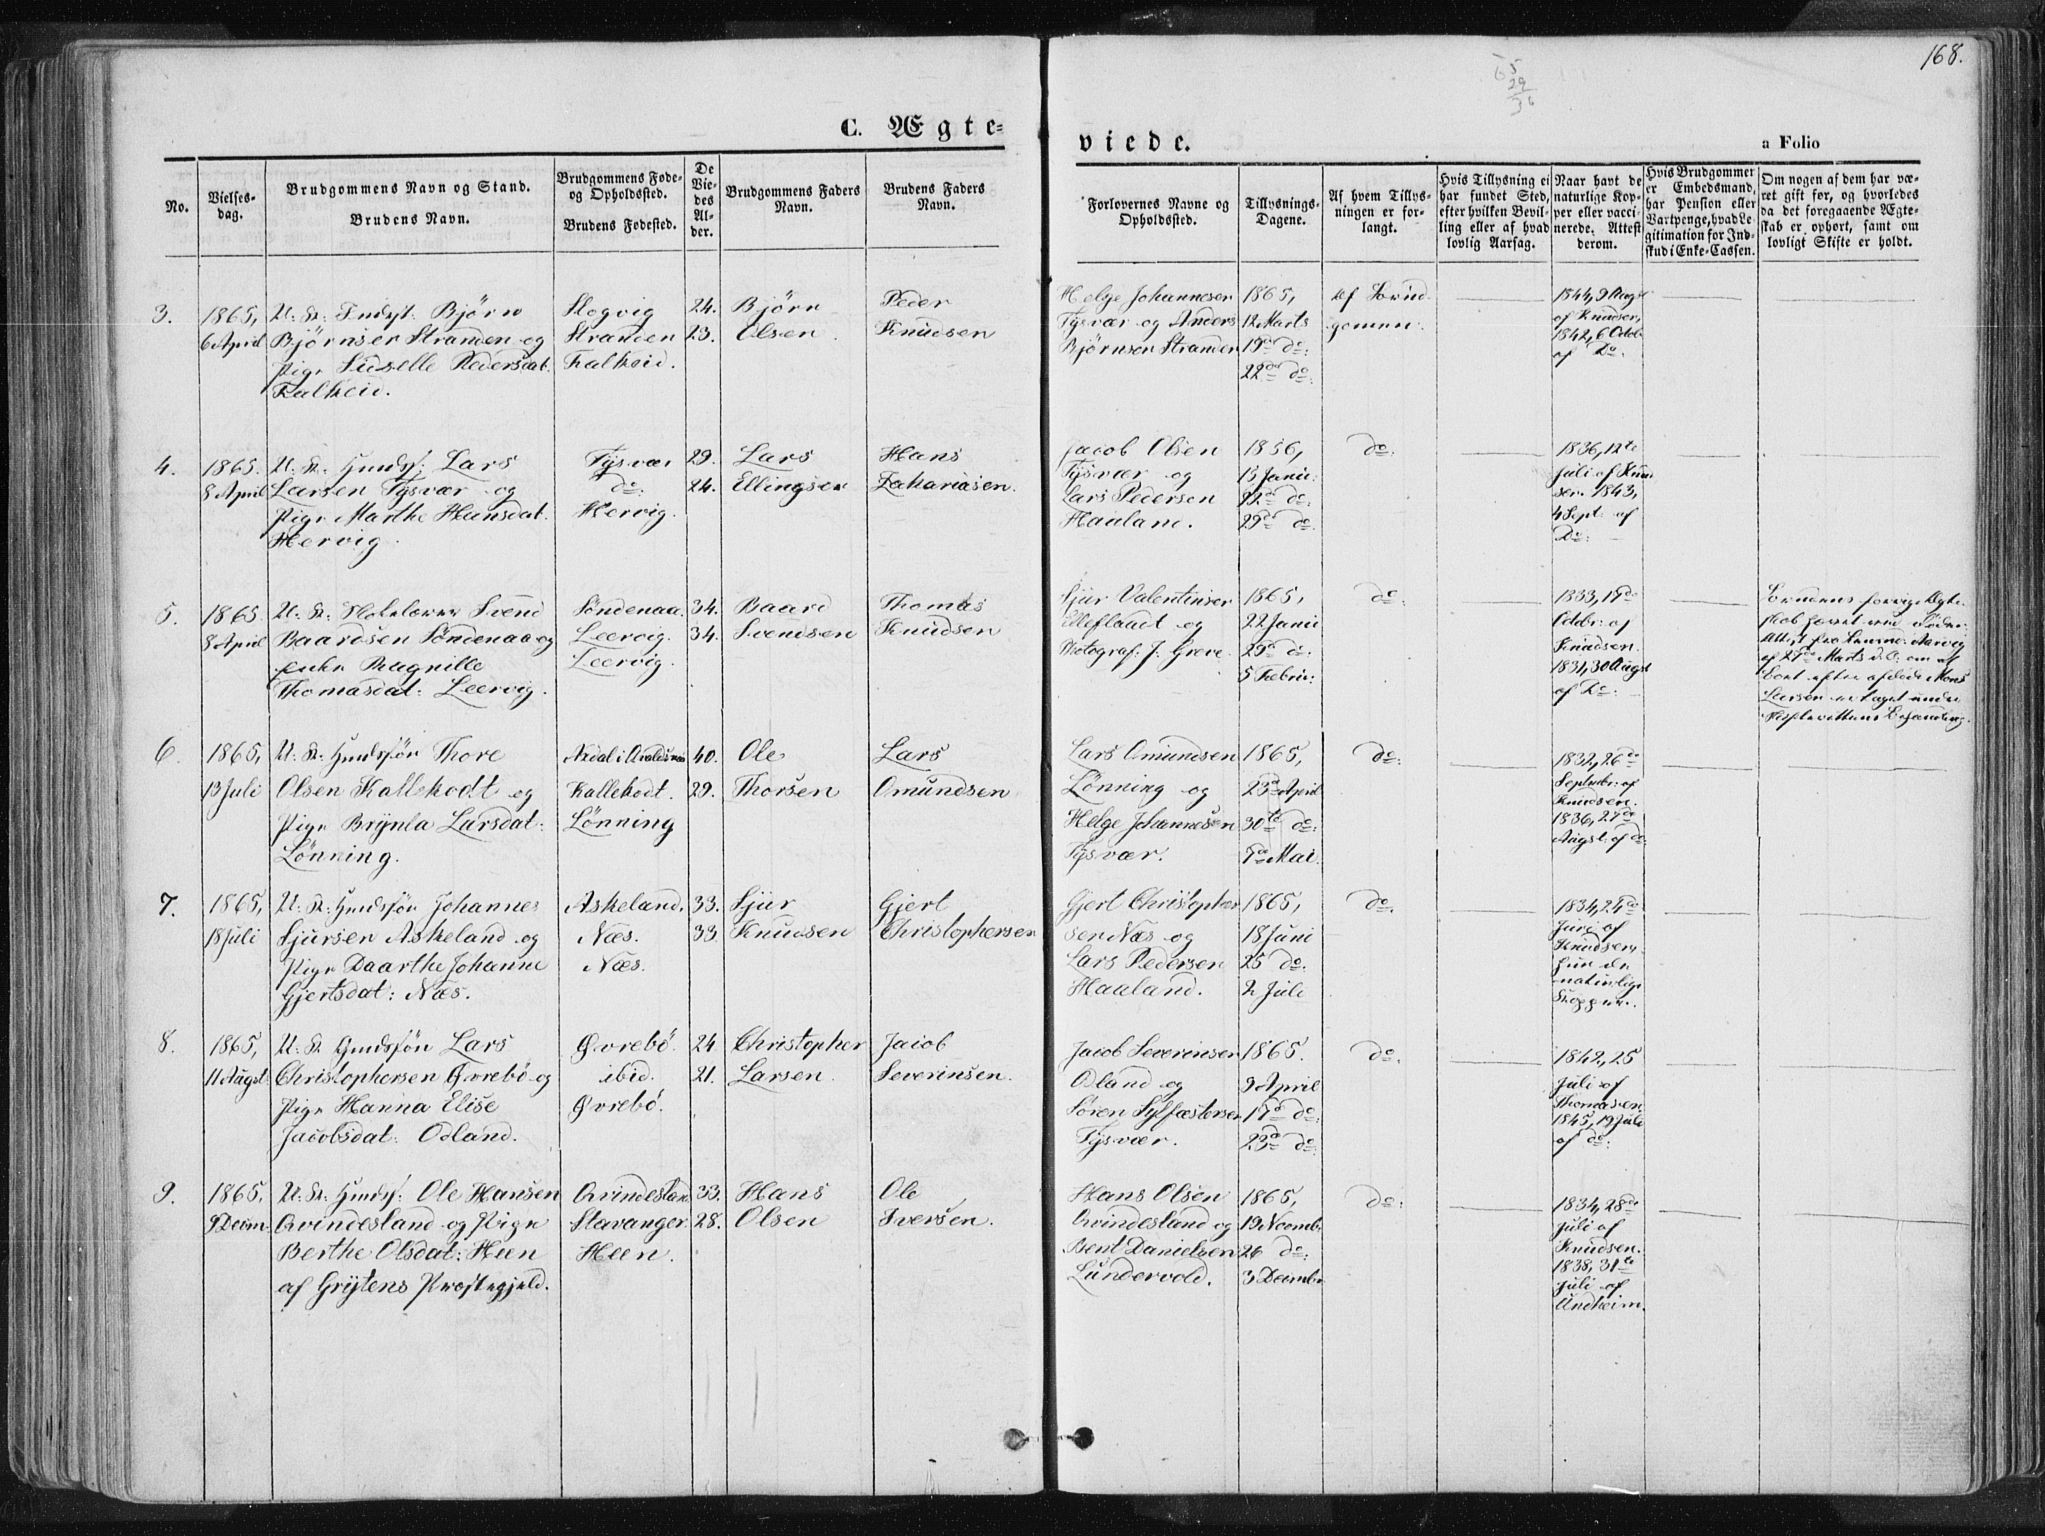 168.
65
29
36
C. Ægte-
viede.
a Folio
No.
Vielses-
dag.
Brudgommens Navn og Stand.
Brudens Navn.
Brudgommens Føde-
og Opholdssted.
Brudens Fødested.
De
Vie-
des
Al-
der.
Brudgommens Faders
Navn.
Brudens Faders
Navn.
Forlovernes Navne og
Opholdssted.
Tillysnings-
Dagene.
Af hvem Tillys-
ningen er for-
langt.
Hvis Tillysning ei
har fundet Sted,
efter hvilken Bevil-
ling eller af hvad
lovlig Aarsag.
Naar havt de
naturlige Kop-
per eller vacci-
nerede. Attest
derom.
Hvis Brudgommen
er Embedsmand,
har Pension eller
Vartpenge, hvad Le-
gitimation for Ind-
skud i Enke-Cassen.
Om nogen af dem har væ-
ret gift før, og hvorledes
da det foregaaende Ægte-
skab er ophørt, samt om
lovligt Skifte er holdt.
3.
1865,
6 April
U: K: Bjørn
Bjørnsen Stranden og
Pige Suselle Pedersdat.
Falkeid.
Slogvig
Stranden
Falkeid.
24.
23.
Bjørn
Olsen
Peder
Knudsen
Helge Johannesen
Tysvær og Anders
Bjørnsen Stranden
1865,
12 Marts
19de do:
22de do:
Af Brud-
gommen.
1844, 9 Augst
af Knudsen,
1842, 6 Octob
af Do:
4.
1865.
8 April
U: K: Gmdsf: Lars
Larsen Tysvær og
Pige Marthe Hansdat.
Hervig.
Tysvær
do:
Hervig.
29.
24.
Lars
Ellingsen
Hans
Zahariasen.
Jacob Olsen
Tysvær og
Lars Pedersen
Haaland.
1856,
15 Janu:
22de do:
29de do:
do:
1836, 12te
Juli af Knud-
sen. 1843,
4 Sept: af
Do:
5.
1865
8 April
U: K: Svend
Baardsen Søndenaa og
Enke Ragnille
Thomasdat: Leervig.
Søndenaa.
Leervig.
Leervig.
34.
34.
Baard
Svendsen
Thomas
Knudsen
Sjur Valentinsen
og
J: Greve.
1865,
22 Janu
29de do:
5 Febru:
do:
1833, 19de
Octbr: af
Knudsen.
1831, 30 Augst
af Do:
Brudens forrige Ægte-
skab hævet ved Døden.
Attest fra
af 27de Marts d. A: om at
Boet efter afdøde Mons
Larsen er taget under
Skifterettens Behandling.
6.
1865,
13 Juli
U: K: Gmdsføn Thore
Olsen Kallekodt og
Pige Brynla Larsdat:
Lønning.
i Avaldsnæs
Kallekodt.
Lønning
40.
29.
Ole
Thorsen
Lars
Omundsen
Lars Omundsen
Lønning og
Helge Johannesen
Tysvær.
1865,
23de April
30te do:
7de Mai
do:
1832, 26de
Septmbr: af
Knudsen.
1836, 27de
Augst: af do:
7.
1865,
18 Juli
U: K: Gmdsføn Johannes
Sjursen Askeland og
Pige Daarthe Johanne
Gjertsdat: Næs.
Askeland.
Næs.
Næs.
33.
33.
Sjur
Knudsen
Gjert
Christophersen
Gjert Christopher
sen Næs og
Lars Pedersen
Haaland.
1865,
18 Juni
25 do:
2 Juli
do.
1834, 24de
Juni af
Knudsen,
hun de
naturlige
Kopper.
8.
1865,
11 Augst
U: K: Gmdsføn Lars
Christophersen Øvrebø og
Pige Hanna Elise
Jacobsdat: Odland.
Øvrebø
ibid.
Øvrebø.
24
21.
Christopher
Larsen
Jacob
Severinsen.
Jacob Severinsen
Odland og
Søren Sylfæstersen
Tysvær.
1865.
9 April
17de do:
23de do:
do:
1842, 25
Juli af
Thomasen,
1845, 19 Juli
af do:
9.
1865,
9 Decm.
U: K: Gmdsf: Ole Hansen
Qvindesland og Pige
Berthe Olsdat: Heen
af Grytens Præstegjeld.
Qvindesland
Stavanger.
Heen.
33.
28.
Hans
Olsen
Ole
Iversen.
Hans Olsen
Qvindesland og
Bent Danielsen
Lundervold.
1865,
19 Novmbr
26 do:
3 Decmbr
do:
1834, 28de
Juli af
Knudsen.
1838, 31te
Juli af
Undheim.